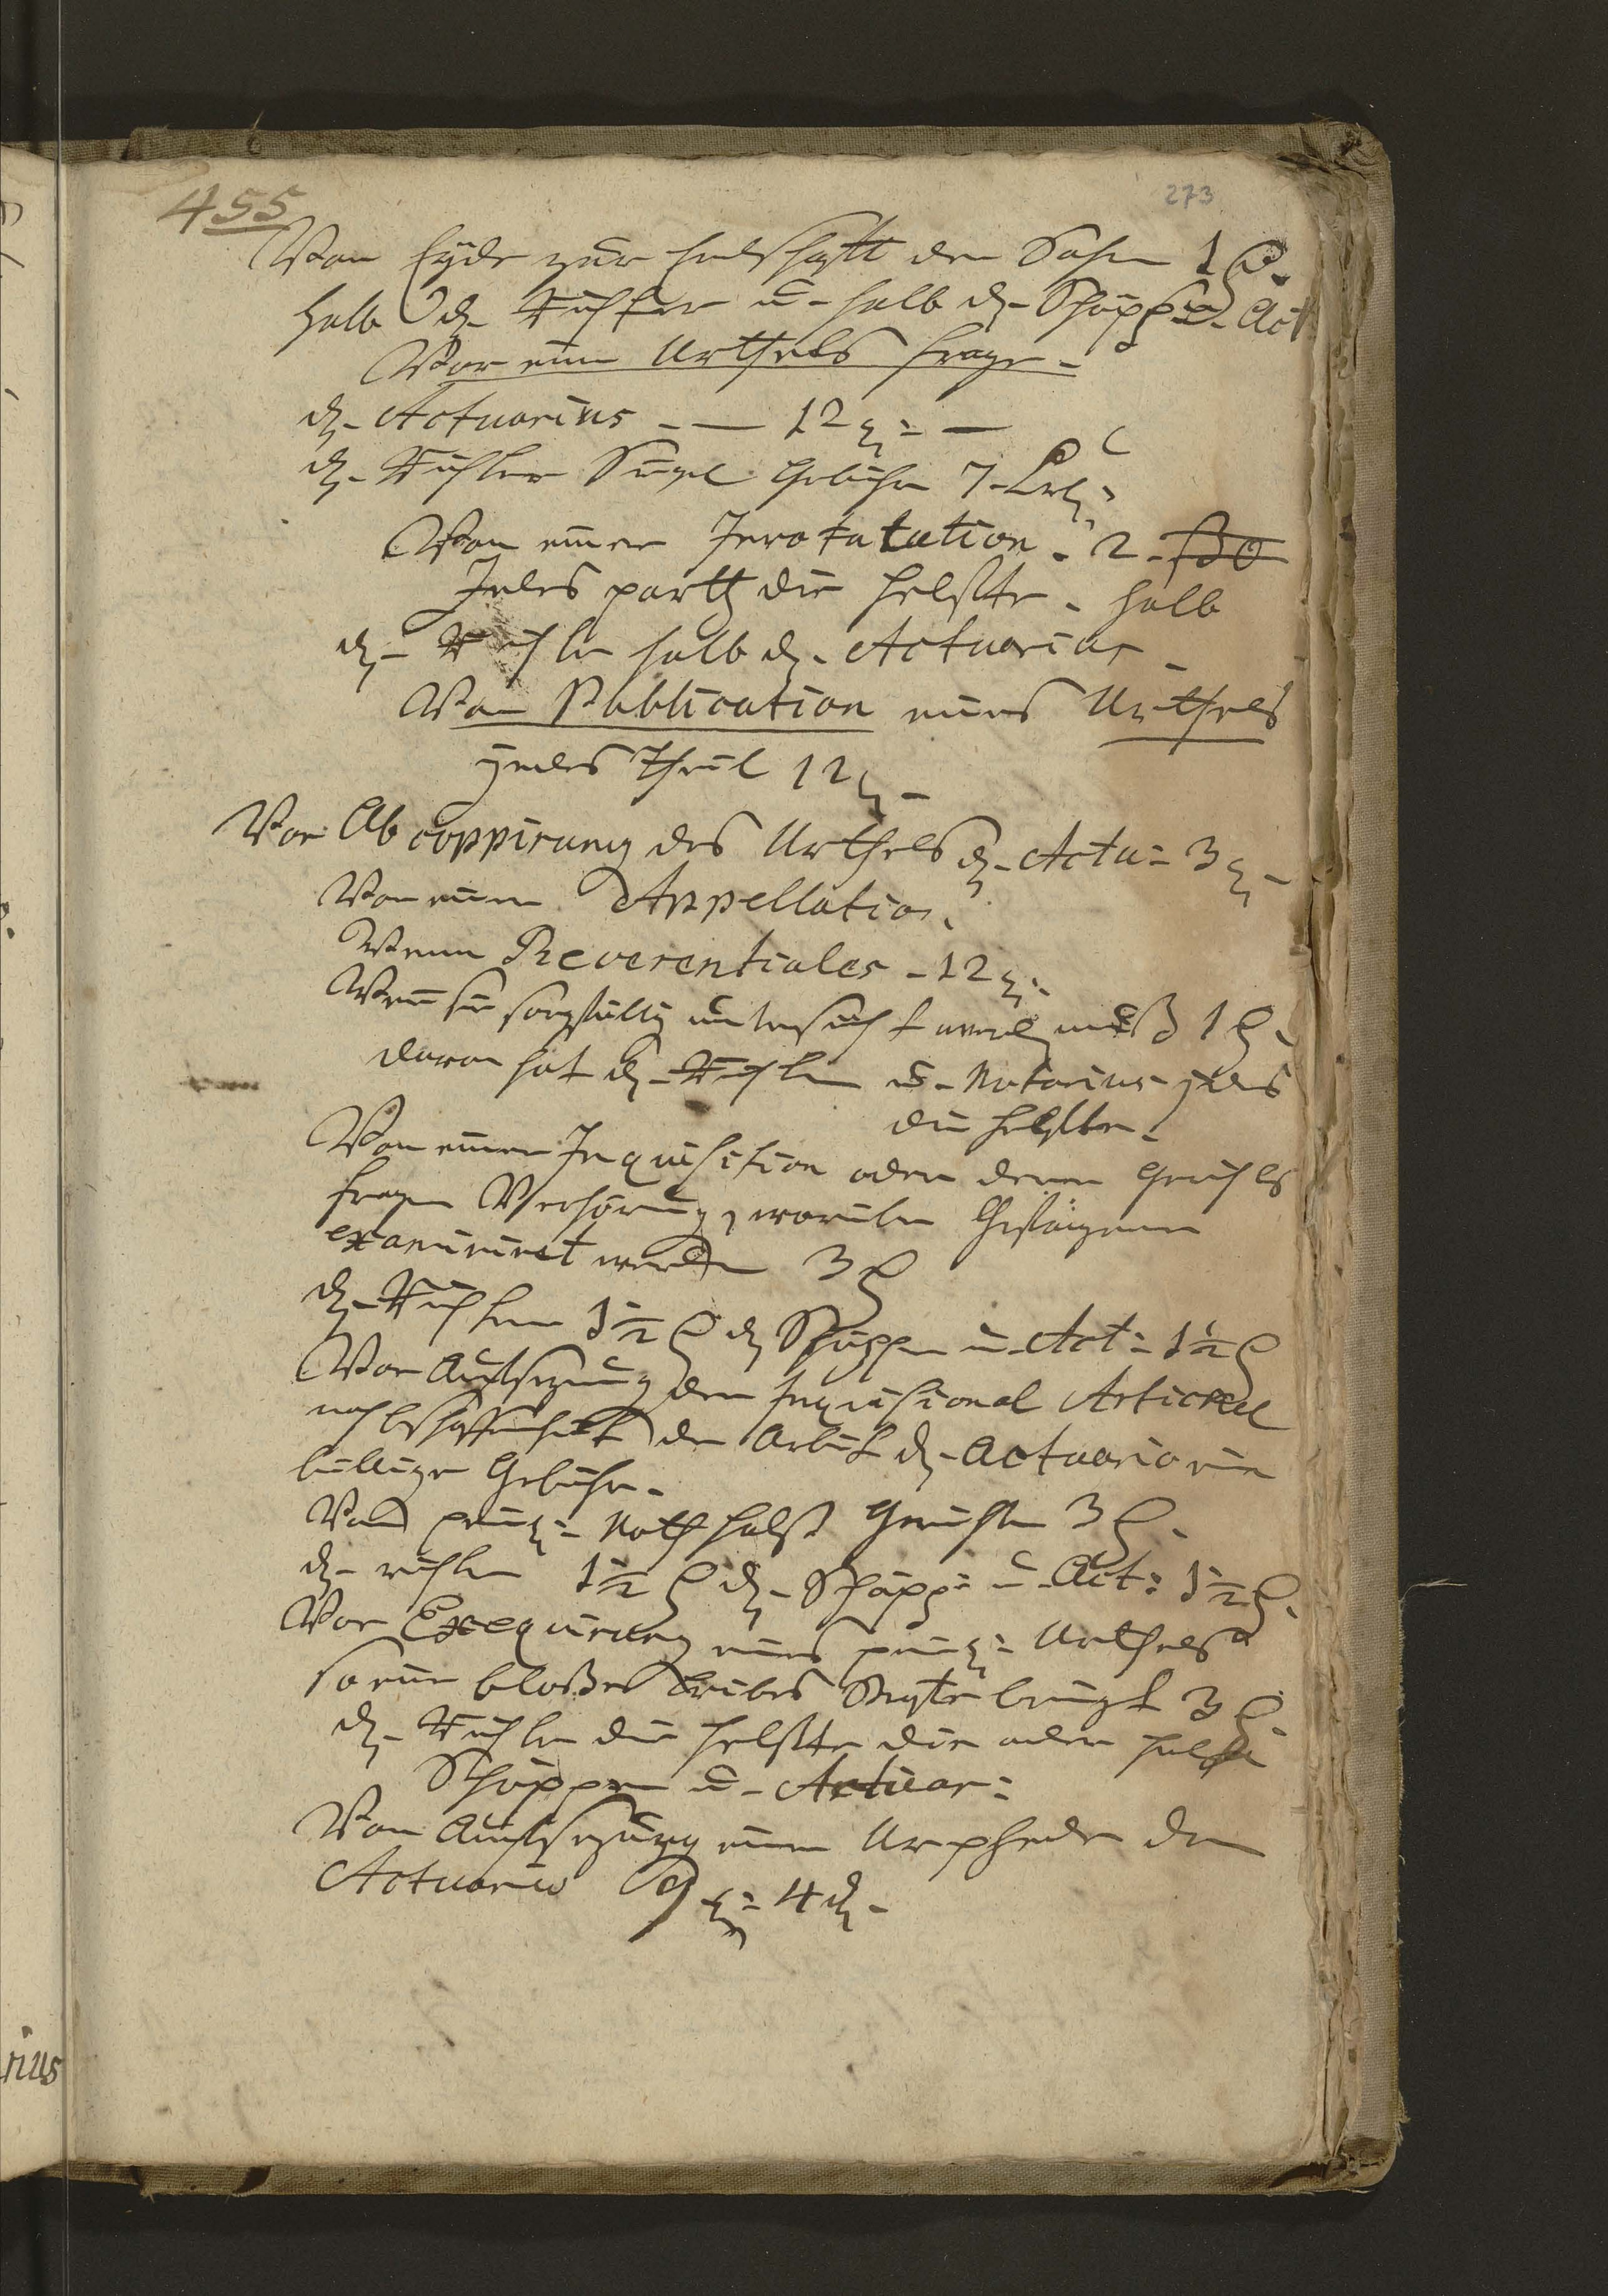 455
273
Von Eyde zur haubtsach der Sachen 1 f.
halb d. Richter u. halb d. Schöpp. u. Act
Vor eine Urthels frage.
d. Actuarius - — 12 g: —
d. Richter Siegel Gebühr 7
Von einer Inrotatution. 2.
Jedes parth die helffte. halb
d. Richter halb d. Actuarius
Von Publication eines Urthels
jedes Theil 12 g.
Vor Ab coppirung des Urthels d. Actu: 3 g.
Von einer Appellation.
Wenn Reverentiales - 12 g.
Wenn sie sorgfältig untersucht werd. muß 1 f.
davon hat d. Richter u. Notarius jedes
die helffte.
Von einer Inquisition oder deren Gerichts
fragen Verhörung, worüber Gefangene
examiniret werden 3 f
d. Richter 1½ f d. Schöppen u. Act: 1½ f
Vor Auffsezung der Inquisional Artickel
nach beschaffenheit der Arbeit d. Actuario ein
billige Gebühr.
Von peinl: Noth halß Gerichte 3 f.
d. richter 1½ f d. Schöpp: u. Act: 1½ f.
Vor Exequirung eines peinl: Urthels
so eine bloße Leibes Straffe bringt 3 f.
d. Richter die helffte die ander helffte
Schöppen u. Actuar:
Von Auffsezung einer Urphede den
Actuario 9 g: 4 d.
rius